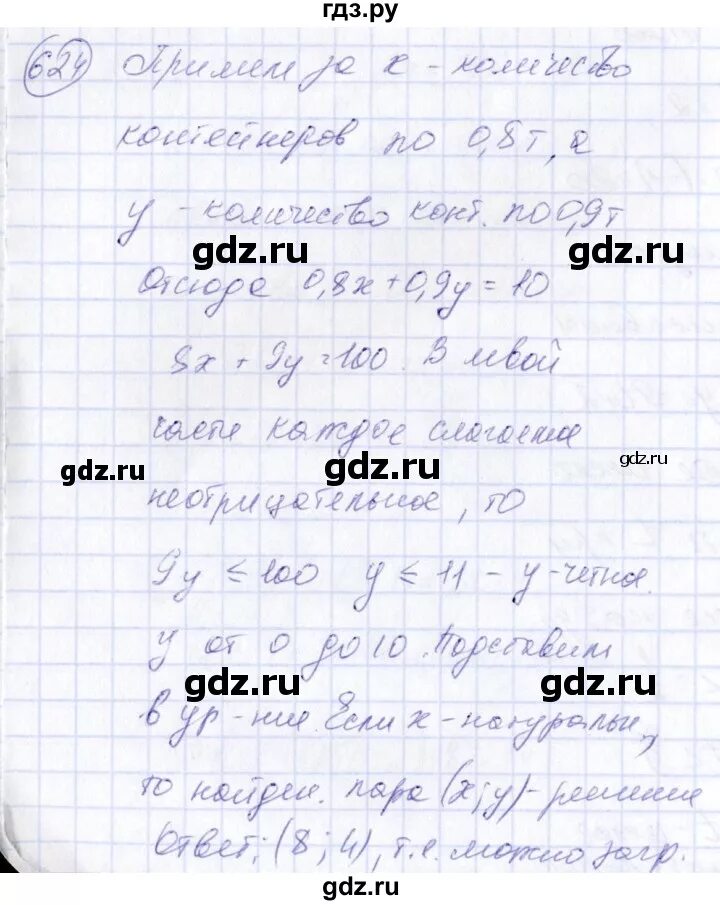 гдз.ру
624 Примем за x - количество
контейнеров по 0,8т, а
y - количество конт. по 0,9т
gdz.ru gdz.ru
Отсюда 0,8x + 0,9y = 10
8x + 9y = 100. В левой
части каждое слагаемое
gdz.ru gdz.ru gdz.ru
неотрицательное, то
9y ≤ 100 y ≤ 11 - y - четное.
y от 0 до 10. Подставим
gdz.ru gdz.ru
в ур-ние. Если x - натуральн,
то найден. пара (x; y) - решение
Ответ: (8; 4), т.е. можно загр.
gdz.ru